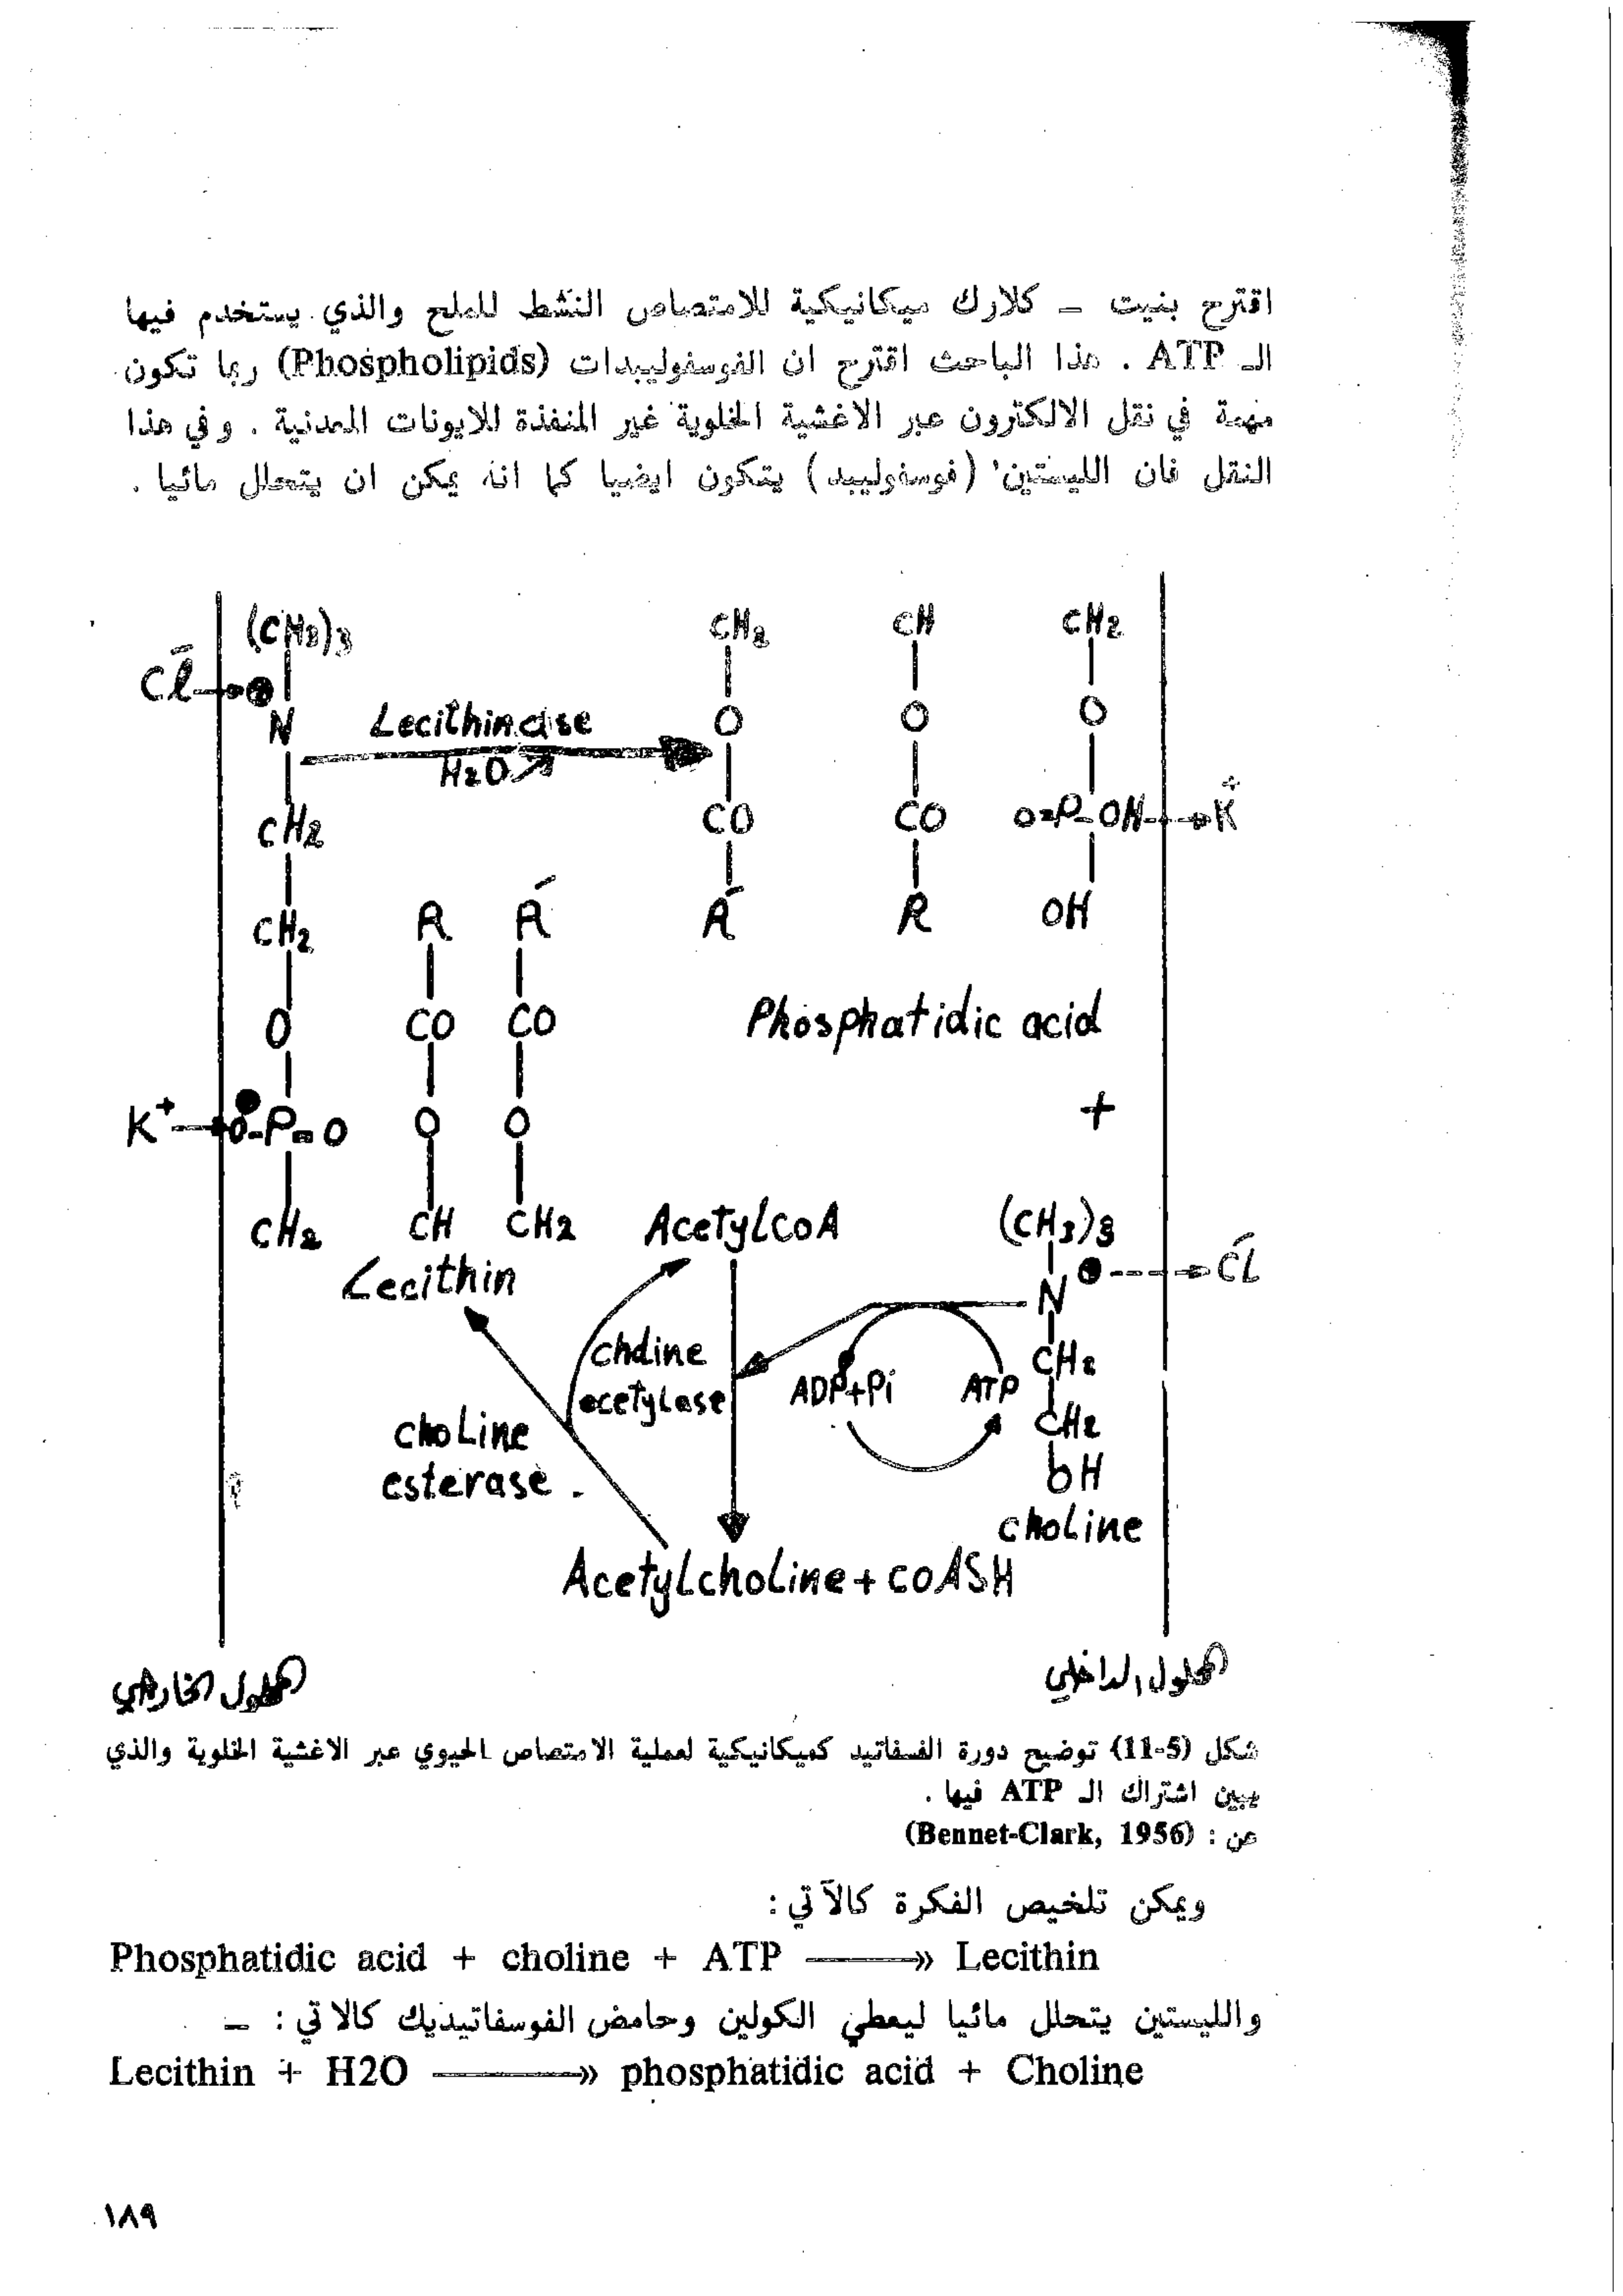 اقترح بنيت ـ كلارك ميكانيكية للامتصاص النشط للملح والذي يستخدم فيها
الـ ATP . هذا الباحث اقترح ان الفوسفوليبدات (Phospholipids) ربما تكون
مهمة في نقل الالكترون عبر الاغشية الخلوية غير المنفذة للايونات المعدنية . وفي هذا
النقل فان الليستين (فوسفوليبيد) يتكون ايضيا كما انه يمكن ان يتحلل مائيا .
(CH3)3
Cl-
N
Lecithinase
H2O
CH2
CH2
O
K+
O-P=O
CH2
R
CO
O
CH
R-
CO
O
CH2
Lecithin
CH2
O
CO
R-
CH
O
CO
R
CH2
O
O=P-OH
K+
OH
Phosphatidic acid
+
AcetylCoA
(CH3)3
N
Cl-
CH2
CH2
OH
choline
ADP+Pi
ATP
choline
acetylase
choline
esterase
Acetylcholine + COASH
المحلول الخارجي
المحلول الداخلي
شكل (5-11) توضيح دورة الفسفاتيد كميكانيكية لعملية الامتصاص الحيوي عبر الاغشية الخلوية والذي
يبين اشتراك الـ ATP فيها .
عن : (Bennet-Clark, 1956)
ويمكن تلخيص الفكرة كالآتي :
Phosphatidic acid + choline + ATP ———» Lecithin
والليستين يتحلل مائيا ليعطي الكولين وحامض الفوسفاتيديك كالاتي : ـ
Lecithin + H2O ———» phosphatidic acid + Choline
١٨٩